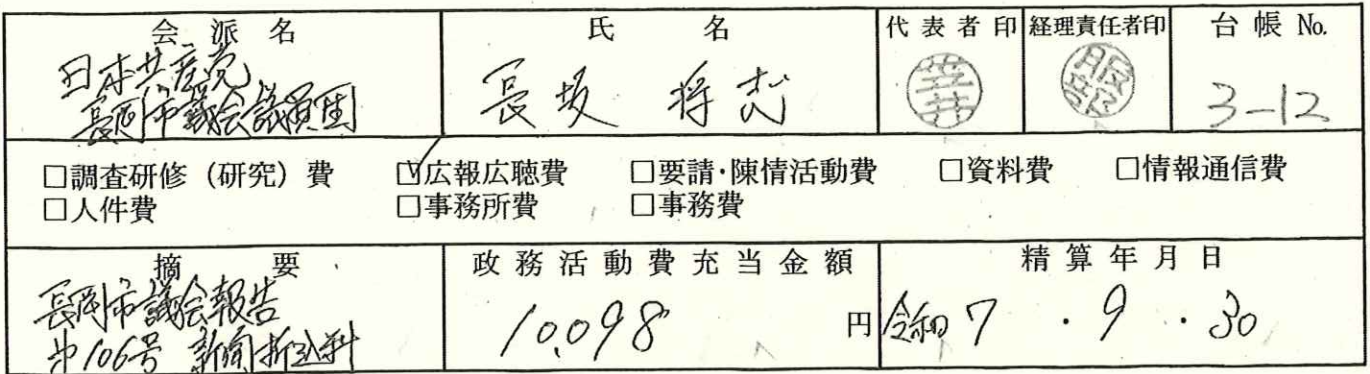 会派名
氏名
代表者印
経理責任者印
台帳 No.
日本共産党
長岡市議会議員団
長坂 将志
笠井
服部
3-12
□調査研修（研究）費 ☑広報広聴費 □要請・陳情活動費 □資料費 □情報通信費
□人件費 □事務所費 □事務費
摘要
政務活動費充当金額
精算年月日
長岡市議会報告
第106号 新聞折込料
10,098 円
令和 7 ・ 9 ・ 30